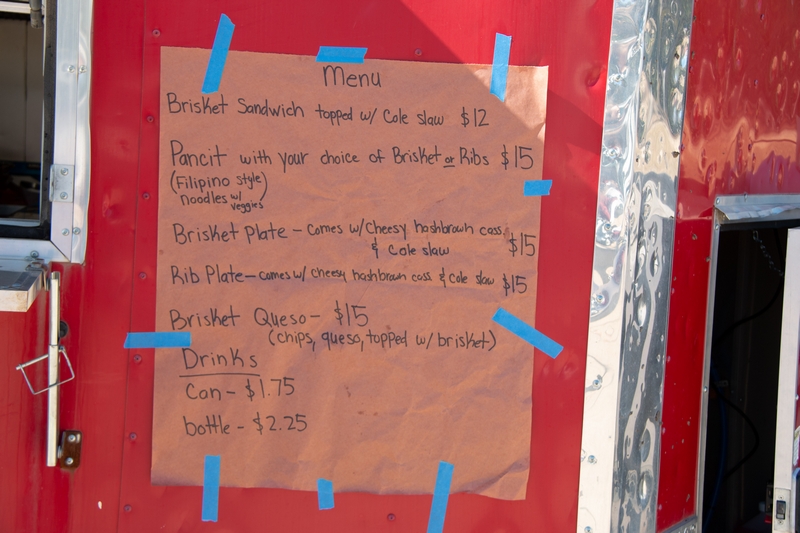 Menu
Brisket Sandwich topped w/ Cole slaw $12
Pancit with your choice of Brisket or Ribs $15
(Filipino style
noodles w/
veggies)
Brisket Plate - Comes w/Cheesy hashbrown cass.
& Cole slaw $15
Rib Plate - comes w/ cheesy hashbrown cass & Cole slaw $15
Brisket Queso - $15
(chips, queso, topped w/ brisket)
Drinks
Can - $1.75
bottle - $2.25